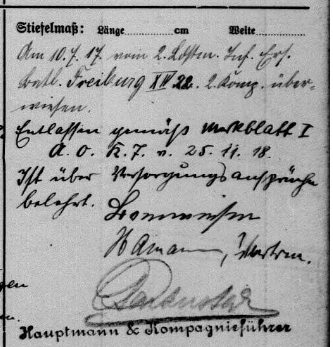 Stiefelmaß: Länge cm Weite
Am 10.7.17. vom 2. Ldstm. Inf. Ers.
Batl. Freiburg XIV 22. 2. Komp. über-
wiesen.
Entlassen gemäß Merkblatt I
A.O.K. 7. v. 25.11.18.
Ist über Versorgungsansprüche
belehrt.
Hauptmann & Kompagnieführer